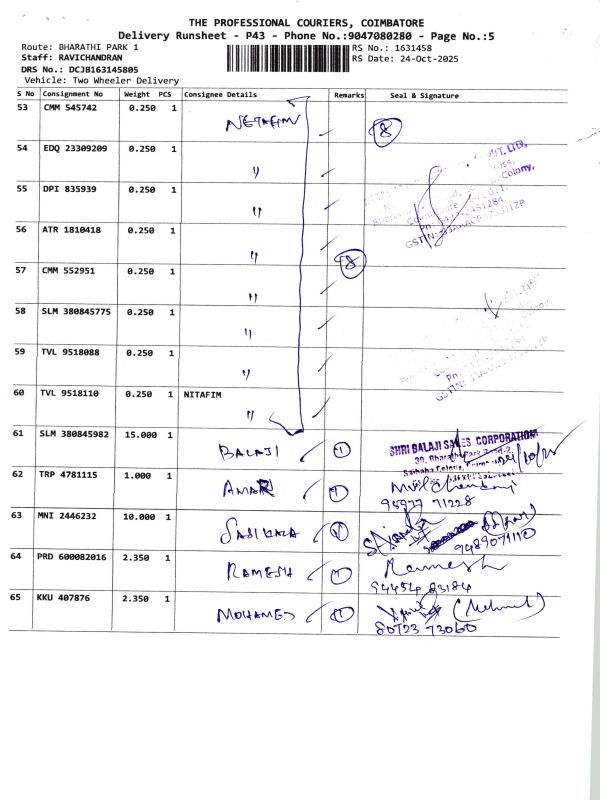 THE PROFESSIONAL COURIERS, COIMBATORE
Delivery Runsheet - P43 - Phone No.:9047080280 - Page No.:5
Route: BHARATHI PARK 1
RS No.: 1631458
Staff: RAVICHANDRAN
RS Date: 24-Oct-2025
DRS No.: DCJB163145805
Vehicle: Two Wheeler Delivery
S No Consignment No Weight PCS Consignee Details Remarks Seal & Signature
53 CMM 545742 0.250 1 NETAFIM
8
54 EDQ 23309209 0.250 1 "
55 DPI 835939 0.250 1 "
56 ATR 1810418 0.250 1 "
8
57 CMM 552951 0.250 1 "
58 SLM 380845775 0.250 1 "
59 TVL 9518088 0.250 1 "
60 TVL 9518110 0.250 1 NITAFIM
"
61 SLM 380845982 15.000 1 BALAJI 1
SHRI BALAJI SALES CORPORATION
62 TRP 4781115 1.000 1 AMAR 1
95977 71228
63 MNI 2446232 10.000 1 SASIKALA 1
9489071110
64 PRD 600082016 2.350 1 RAMESH 1
Ramesh
94454 83184
65 KKU 407876 2.350 1 MOHAMED 1
80723 73060